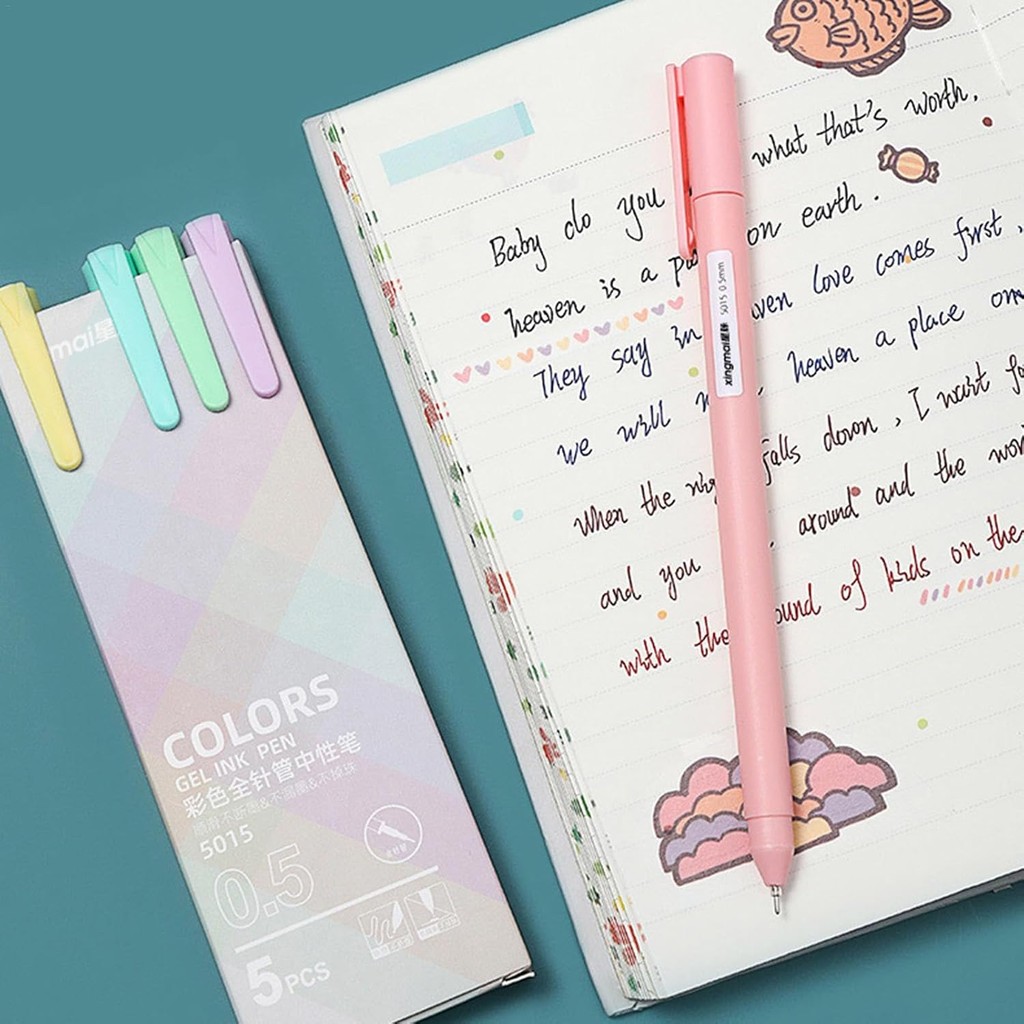 mai星
COLORS
GEL INK PEN
彩色全针管中性笔
顺滑不断墨&不漏墨&不掉珠
5015
0.5
5PCS
xingmai星脉 5015 0.5mm
Baby do you what that's worth,
heaven is a on earth.
They say in love comes first,
we will heaven a place
When the falls down, I want
and you around and the
with the of kids on the